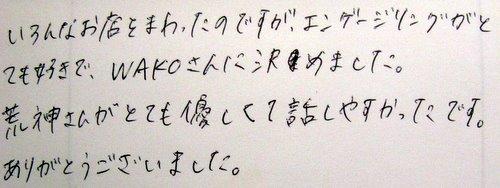 いろんなお店をまわったのですが、エンゲージリングがと
ても好きで、WAKOさんに決めました。
荒神さんがとても優しくて話しやすかったです。
ありがとうございました。